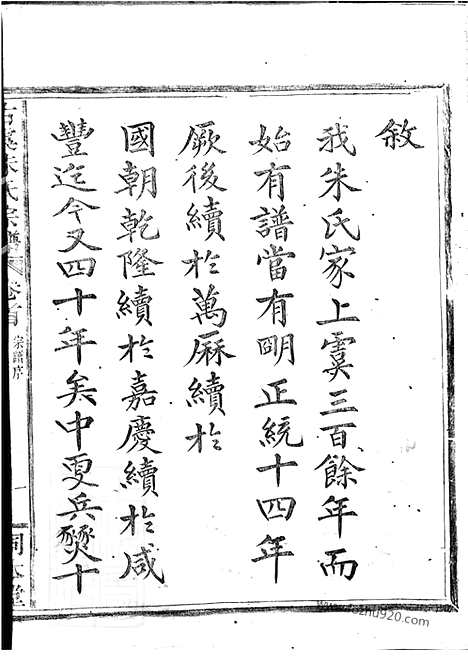 敘
我朱氏家上虞三百餘年而
始有譜當有明正統十四年
厥後續於萬厤續於
國朝乾隆續於嘉慶續於咸
豐迄今又四十年矣中更兵燹十
朱氏宗譜
卷首
宗譜序
一